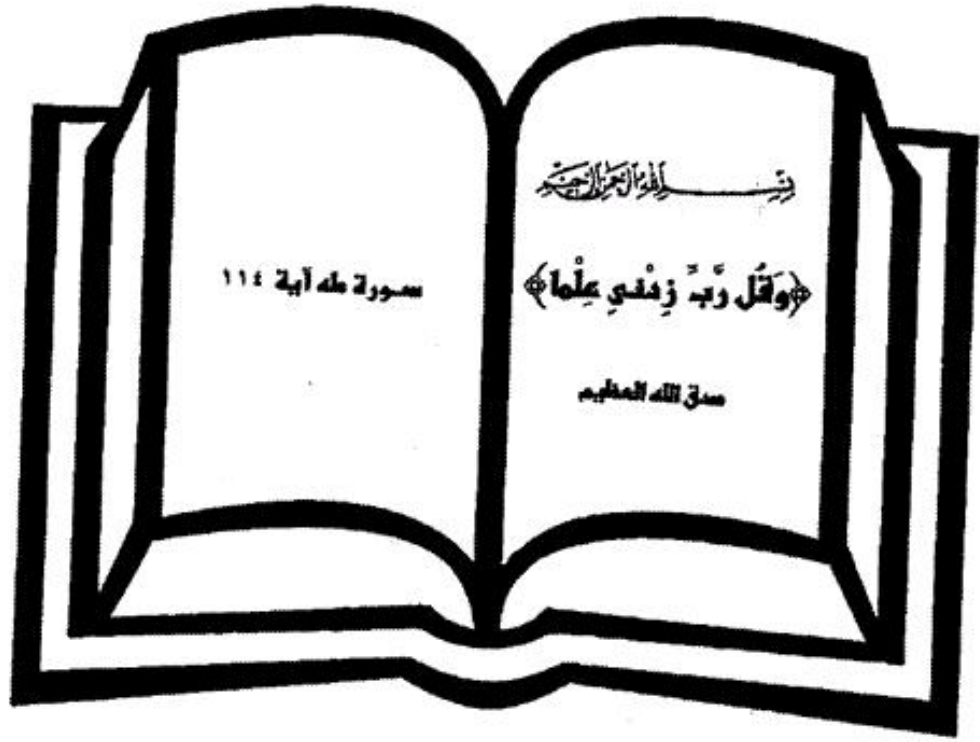 بسم الله الرحمن الرحيم
﴿وَقُل رَّبِّ زِدْنِي عِلْما﴾
صدق الله العظيم
سورة طه آية ١١٤